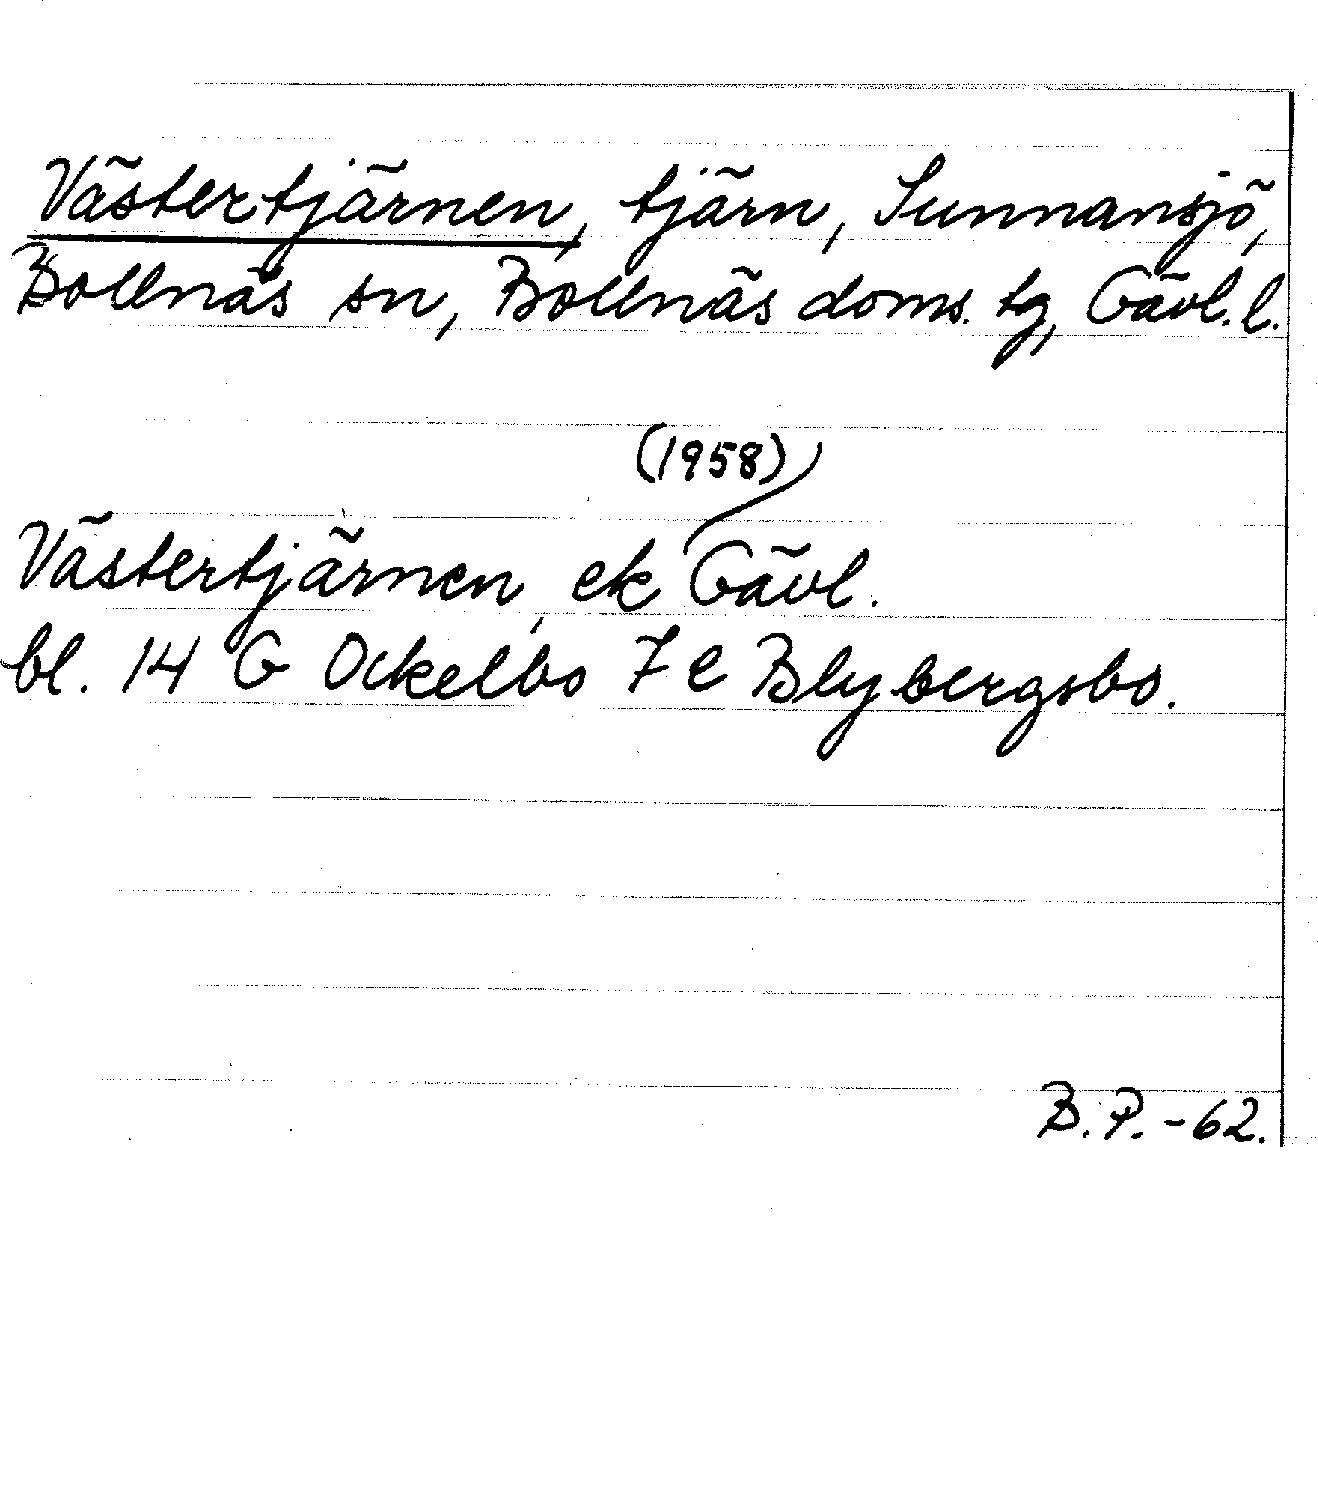 Västertjärnen, tjärn, Sunnansjö,
Bollnäs sn, Bollnäs doms. tg, Gävl. l.
(1958)
Västertjärnen, ek Gävl.
bl. 14 G Ockelbo 7 e Blybergsbo.
B.P. -62.